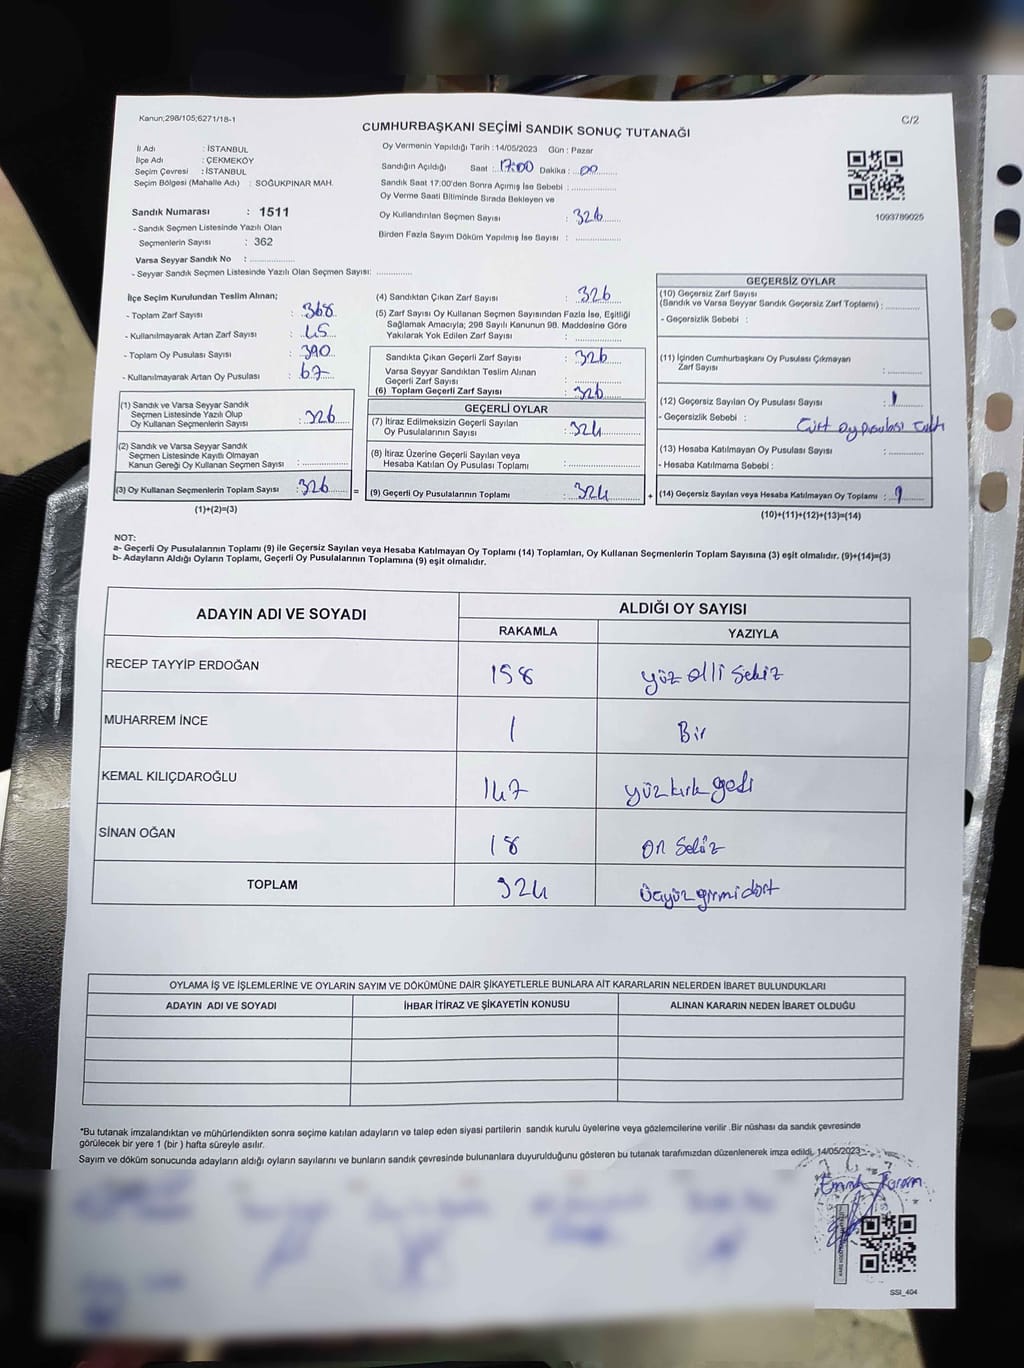 Kanun;298/105;6271/18-1
C/2
CUMHURBAŞKANI SEÇİMİ SANDIK SONUÇ TUTANAĞI
İl Adı : İSTANBUL
İlçe Adı : ÇEKMEKÖY
Seçim Çevresi : İSTANBUL
Seçim Bölgesi (Mahalle Adı) : SOĞUKPINAR MAH.
Sandık Numarası : 1511
- Sandık Seçmen Listesinde Yazılı Olan
Seçmenlerin Sayısı : 362
Varsa Seyyar Sandık No :
- Seyyar Sandık Seçmen Listesinde Yazılı Olan Seçmen Sayısı:
Oy Vermenin Yapıldığı Tarih : 14/05/2023 Gün : Pazar
Sandığın Açıldığı Saat : 17:00 Dakika : 00
Sandık Saat 17.00'den Sonra Açımış İse Sebebi :
Oy Verme Saati Bitiminde Sırada Bekleyen ve
Oy Kullandırılan Seçmen Sayısı : 326
Birden Fazla Sayım Döküm Yapılmış İse Sayısı :
1093789025
İlçe Seçim Kurulundan Teslim Alınan;
- Toplam Zarf Sayısı : 368
- Kullanılmayarak Artan Zarf Sayısı : 45
- Toplam Oy Pusulası Sayısı : 390
- Kullanılmayarak Artan Oy Pusulası : 67
(1) Sandık ve Varsa Seyyar Sandık
Seçmen Listesinde Yazılı Olup
Oy Kullanan Seçmenlerin Sayısı : 326
(2) Sandık ve Varsa Seyyar Sandık
Seçmen Listesinde Kayıtlı Olmayan
Kanun Gereği Oy Kullanan Seçmen Sayısı :
(3) Oy Kullanan Seçmenlerin Toplam Sayısı : 326
(1)+(2)=(3)
=
(4) Sandıktan Çıkan Zarf Sayısı : 326
(5) Zarf Sayısı Oy Kullanan Seçmen Sayısından Fazla İse, Eşitliği
Sağlamak Amacıyla; 298 Sayılı Kanunun 98. Maddesine Göre
Yakılarak Yok Edilen Zarf Sayısı :
Sandıkta Çıkan Geçerli Zarf Sayısı : 326
Varsa Seyyar Sandıktan Teslim Alınan
Geçerli Zarf Sayısı :
(6) Toplam Geçerli Zarf Sayısı : 326
GEÇERLİ OYLAR
(7) İtiraz Edilmeksizin Geçerli Sayılan
Oy Pusulalarının Sayısı : 324
(8) İtiraz Üzerine Geçerli Sayılan ve
Hesaba Katılan Oy Pusulası Toplamı :
(9) Geçerli Oy Pusulalarının Toplamı : 324
+
GEÇERSİZ OYLAR
(10) Geçersiz Zarf Sayısı
(Sandık ve Varsa Seyyar Sandık Geçersiz Zarf Toplamı) :
- Geçersizlik Sebebi :
(11) İçinden Cumhurbaşkanı Oy Pusulası Çıkmayan
Zarf Sayısı :
(12) Geçersiz Sayılan Oy Pusulası Sayısı : 1
- Geçersizlik Sebebi : Çift Oy pusulası Çıktı
(13) Hesaba Katılmayan Oy Pusulası Sayısı :
- Hesaba Katılmama Sebebi :
(14) Geçersiz Sayılan veya Hesaba Katılmayan Oy Toplamı : 1
(10)+(11)+(12)+(13)=(14)
NOT:
a- Geçerli Oy Pusulalarının Toplamı (9) ile Geçersiz Sayılan veya Hesaba Katılmayan Oy Toplamı (14) Toplamları, Oy Kullanan Seçmenlerin Toplam Sayısına (3) eşit olmalıdır. (9)+(14)=(3)
b- Adayların Aldığı Oyların Toplamı, Geçerli Oy Pusulalarının Toplamına (9) eşit olmalıdır.
ADAYIN ADI VE SOYADI
ALDIĞI OY SAYISI
RAKAMLA YAZIYLA
RECEP TAYYİP ERDOĞAN 158 yüz elli sekiz
MUHARREM İNCE 1 Bir
KEMAL KILIÇDAROĞLU 147 yüz kırk yedi
SİNAN OĞAN 18 on sekiz
TOPLAM 324 üçyüz yirmi dört
OYLAMA İŞ VE İŞLEMLERİNE VE OYLARIN SAYIM VE DÖKÜMÜNE DAİR ŞİKAYETLERLE BUNLARA AİT KARARLARIN NELERDEN İBARET BULUNDUKLARI
ADAYIN ADI VE SOYADI İHBAR İTİRAZ VE ŞİKAYETİN KONUSU ALINAN KARARIN NEDEN İBARET OLDUĞU
*Bu tutanak imzalandıktan ve mühürlendikten sonra seçime katılan adayların ve talep eden siyasi partilerin sandık kurulu üyelerine veya gözlemcilerine verilir .Bir nüshası da sandık çevresinde
görülecek bir yere 1 (bir ) hafta süreyle asılır.
Sayım ve döküm sonucunda adayların aldığı oyların sayılarını ve bunların sandık çevresinde bulunanlara duyurulduğunu gösteren bu tutanak tarafımızdan düzenlenerek imza edildi. 14/05/2023
SSI_404